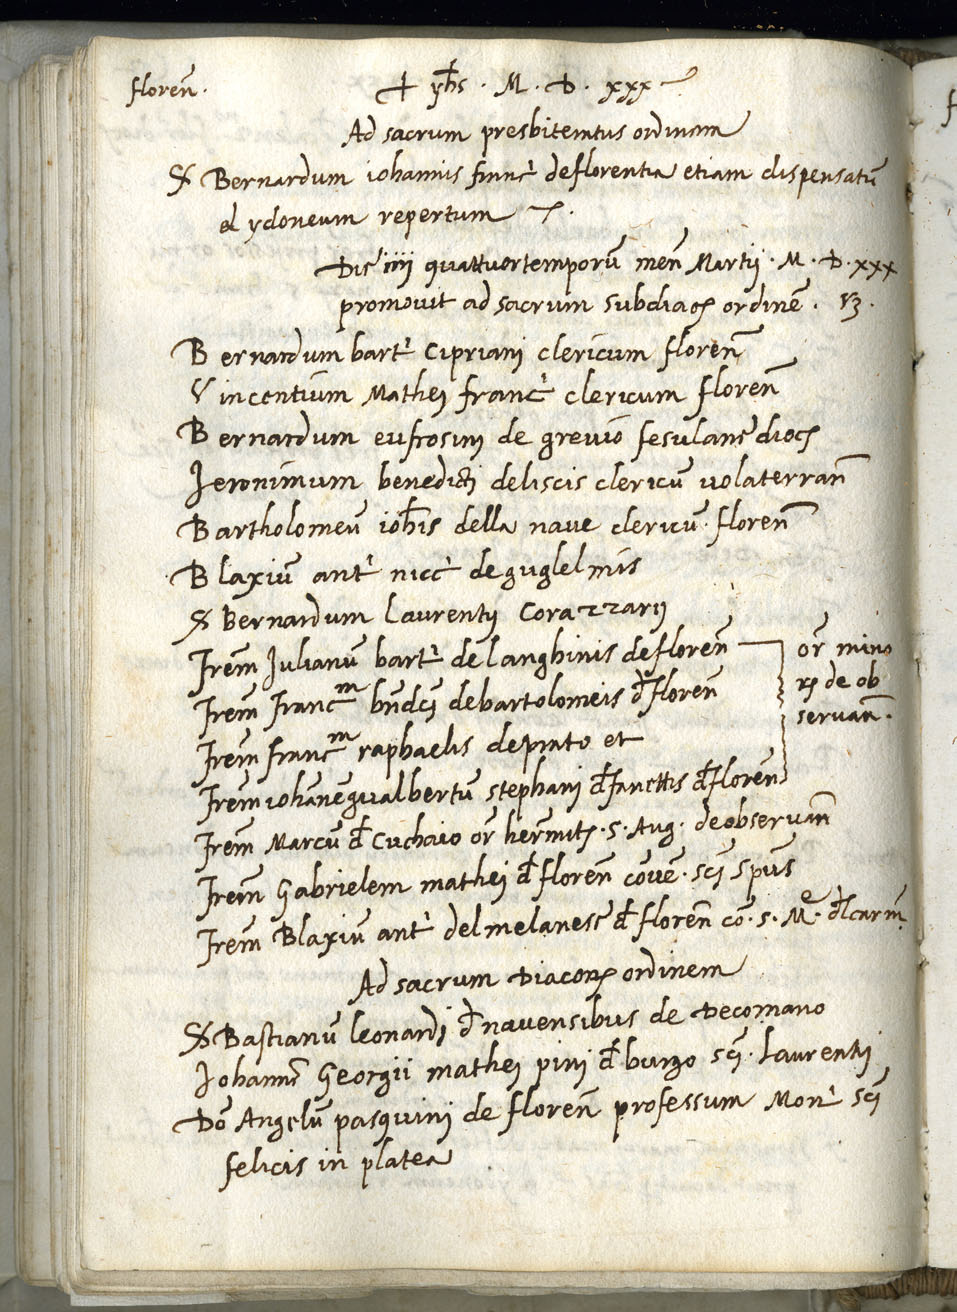 floren̄.
+ yħs · M · D · xxx
Ad sacrum presbiteratus ordinem
Bernardum iohannis franc̄ de florentia etiam dispensatū
et ydoneum repertum
Die iiij quattuortemporū men̄ Martij · M · D · xxx
promouit ad sacrum subdiac ordinē · vz ·
Bernardum bart̄ Cipriani clericum floren̄
Vincentium Mathei franc̄ clericum floren̄
Bernardum eufrosini de greuio fesulane dioc
Ieronimum benedicti deliscis clericū uolaterran̄
Bartholomeū ioħis della naue clericū · floren̄
Blaxiū ant̄ nicc̄ de guglelmis
Bernardum Laurentij Corazzarij
frem̄ Iulianū bart̄ de langhinis de floren̄
or̄ mino
rum de ob
seruan̄ ·
frem̄ franc̄m bn̄dcj de bartolomeis đ floren̄
frem̄ franc̄m raphaelis de prato et
frem̄ iohanēgualbertū stephani đ fancttis đ floren̄
frem̄ Marcū đ Cuchaio or̄ hermit · s · Aug · de obseruan̄
frem̄ Gabrielem mathei đ floren̄ cōue · scj spūs
frem̄ Blaxiū ant̄ del melanese đ floren̄ cō · s · Me · đl carm̄
Ad sacrum Diacon ordinem
Bastianū leonardj đ nauensibus de Decomano
Iohannē Georgii mathei pini đ burgo scj · Laurentij
Dō Angelū pasquini de floren̄ professum Mon̄ scj
felicis in platea